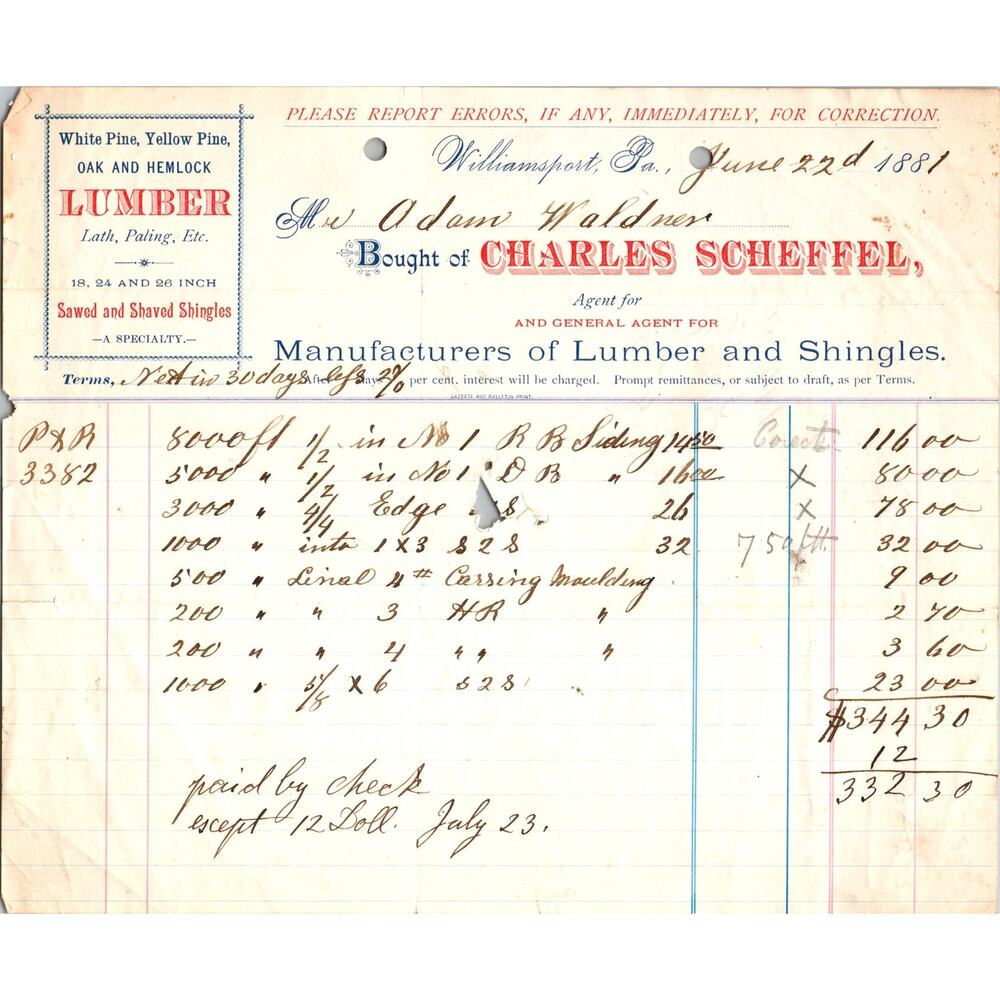 PLEASE REPORT ERRORS, IF ANY, IMMEDIATELY, FOR CORRECTION.
White Pine, Yellow Pine,
OAK AND HEMLOCK
LUMBER
Lath, Paling, Etc.
18, 24 AND 26 INCH
Sawed and Shaved Shingles
—A SPECIALTY.—
Williamsport, Pa., June 22d 1881
Mr Adam Waldner
Bought of CHARLES SCHEFFEL,
Agent for
AND GENERAL AGENT FOR
Manufacturers of Lumber and Shingles.
Terms, Nett in 30 days less 2% After days per cent. interest will be charged. Prompt remittances, or subject to draft, as per Terms.
GAZETTE AND BULLETIN PRINT.
P & R 8000 ft 1/2 in No 1 R B Siding 14 50 Corect 116 00
3382 5000 " 1/2 in No 1 D B " 16 00 x 80 00
3000 " 4/4 Edge S 26 x 78 00
1000 " into 1 x 3 S 2 S 32 7 50 ft. 32 00
500 " Linal 4 " Cassing Moulding 9 00
200 " " 3 HR " 2 70
200 " " 4 " " " 3 60
1000 " 5/8 x 6 S 2 S 23 00
$344 30
12
332 30
paid by check
except 12 Doll. July 23.